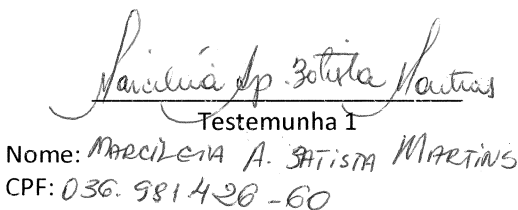 Marciléia Ap. Batista Martins
Testemunha 1
Nome: MARCILEIA A. BATISTA MARTINS
CPF: 036.981.426-60